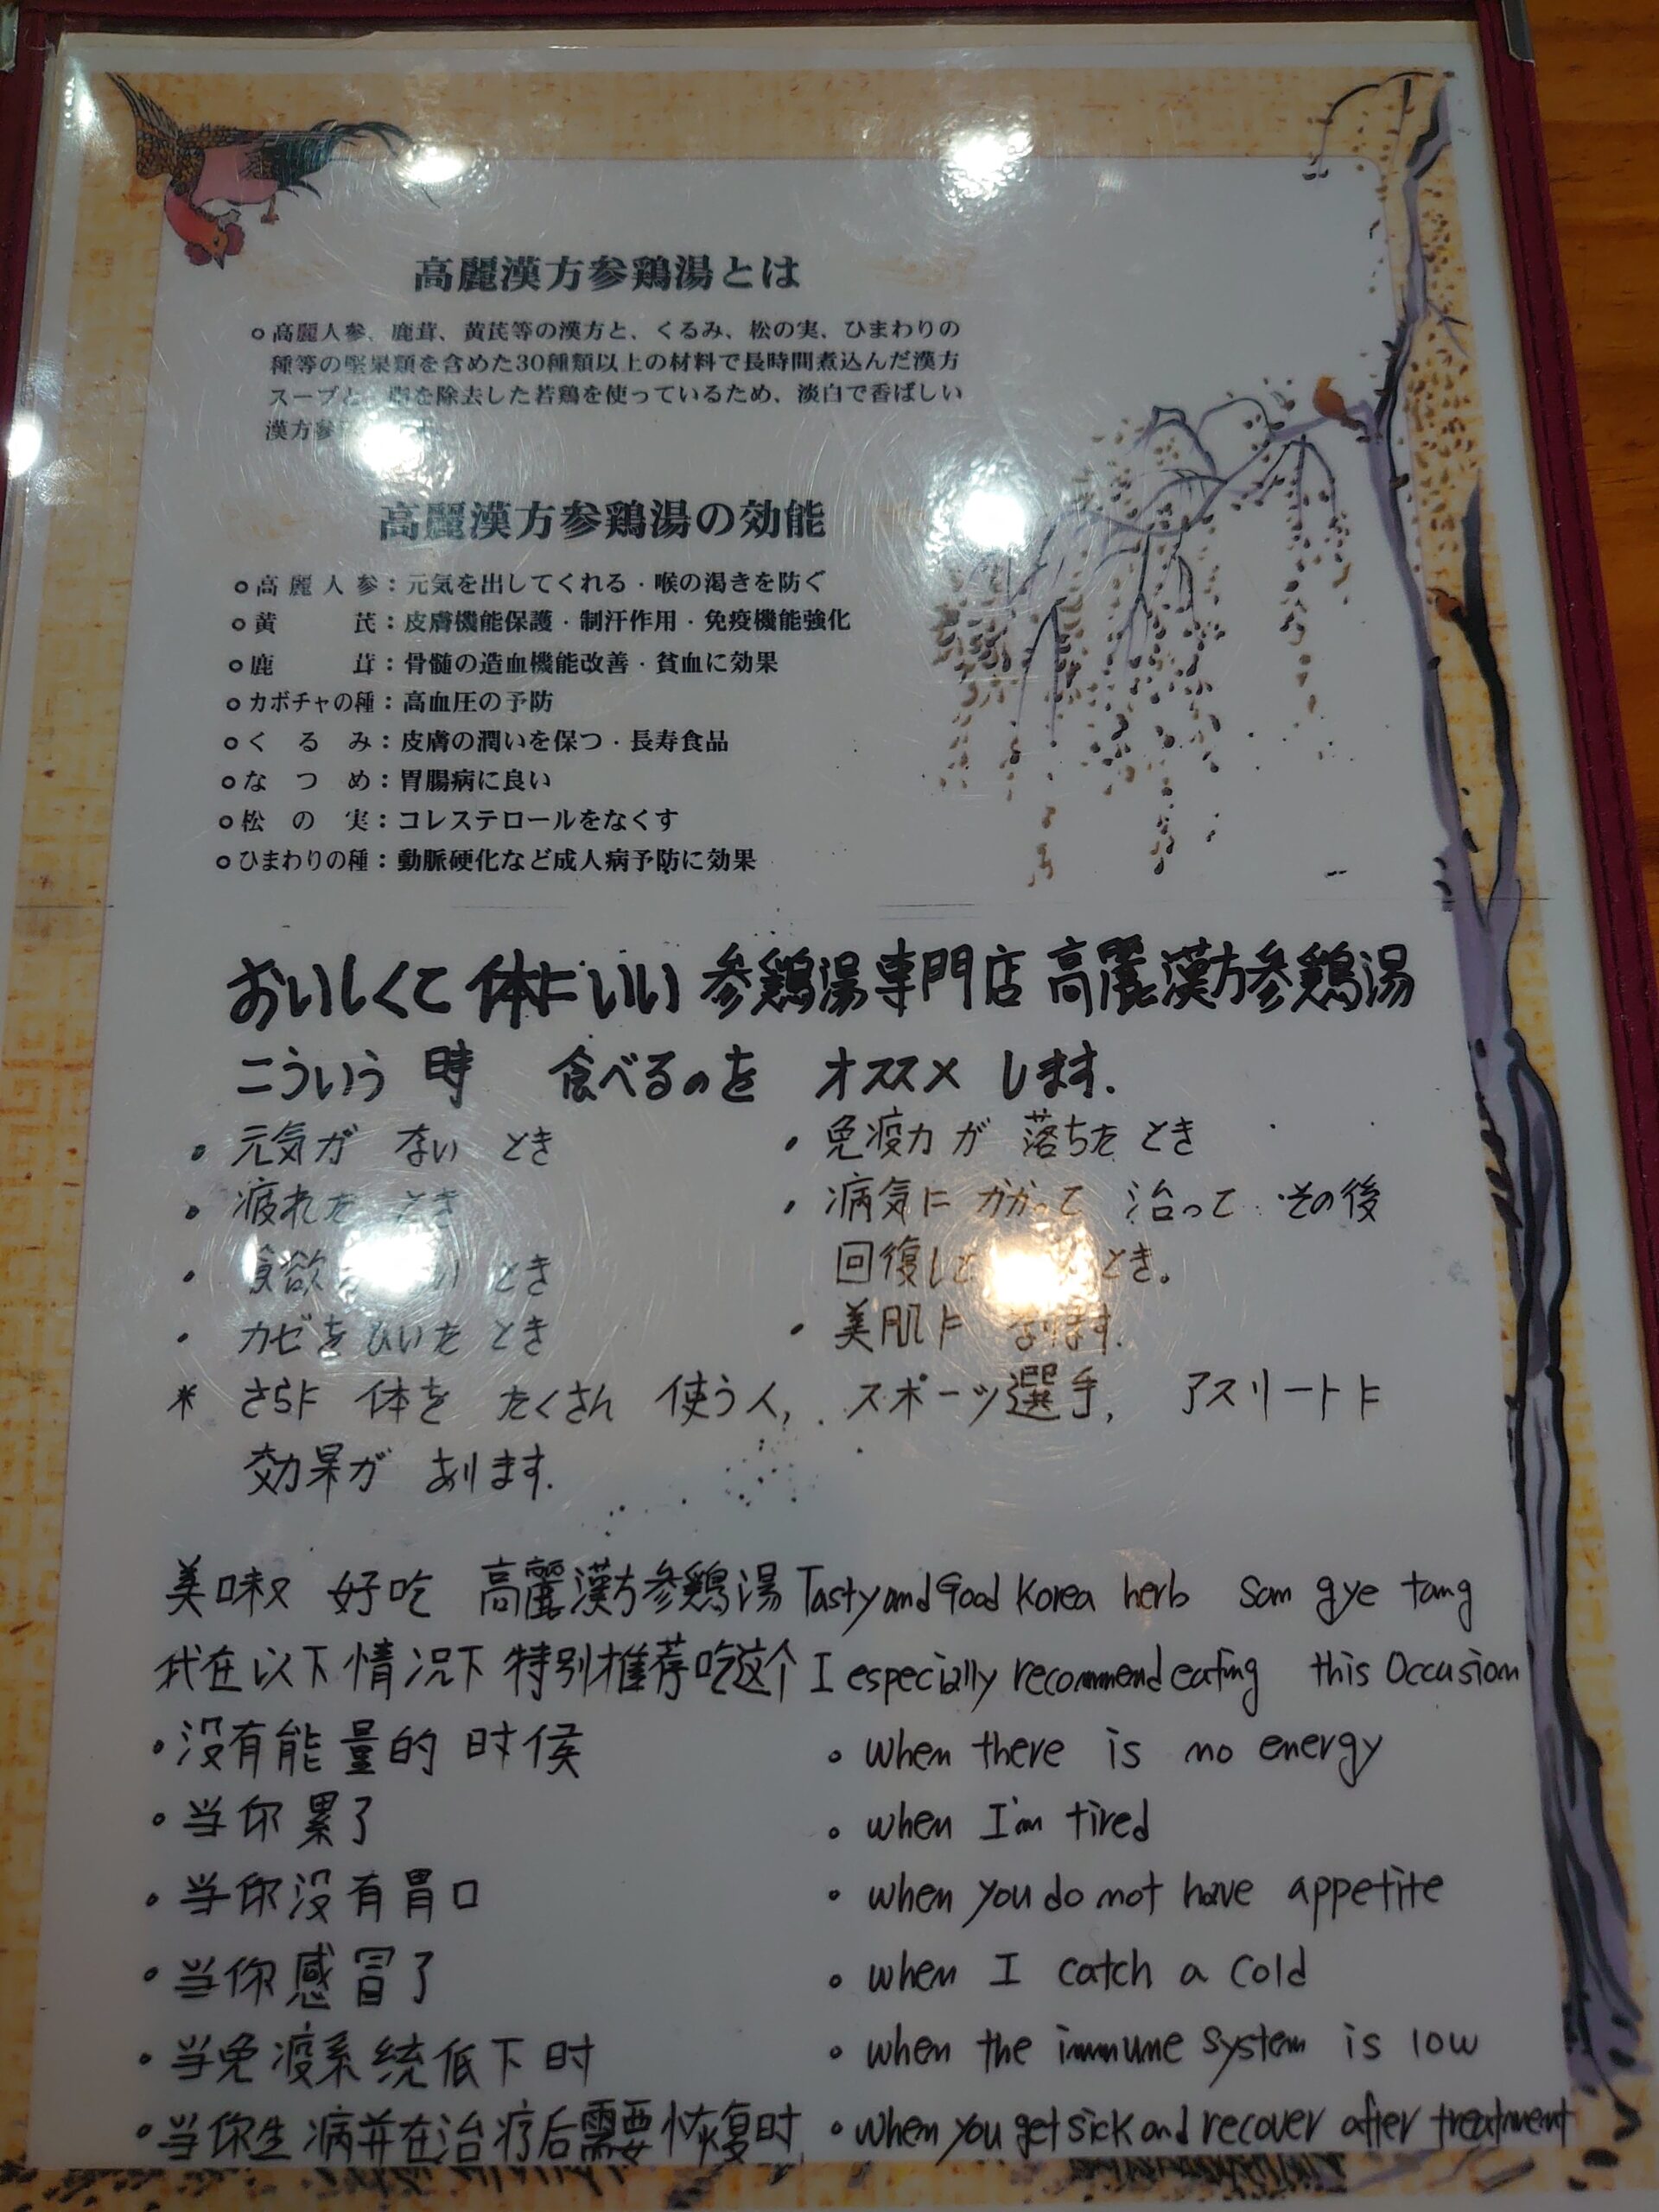 高麗漢方参鶏湯とは
○高麗人参、鹿茸、黄芪等の漢方と、くるみ、松の実、ひまわりの
種等の堅果類を含めた30種類以上の材料で長時間煮込んだ漢方
スープと、を除去した若鶏を使っているため、淡白で香ばしい
漢方参
高麗漢方参鶏湯の効能
○高麗人参：元気を出してくれる・喉の渇きを防ぐ
○黄芪：皮膚機能保護・制汗作用・免疫機能強化
○鹿茸：骨髄の造血機能改善・貧血に効果
○カボチャの種：高血圧の予防
○くるみ：皮膚の潤いを保つ・長寿食品
○なつめ：胃腸病に良い
○松の実：コレステロールをなくす
○ひまわりの種：動脈硬化など成人病予防に効果
おいしくて 体にいい 参鶏湯専門店 高麗漢方参鶏湯
こういう 時 食べるのを オススメ します.
・元気が ない とき
・疲れた とき
・食欲 い とき
・カゼを ひいた とき
・免疫力が 落ちた とき
・病気に かかって 治って その後
回復し とき。
・美肌に なります.
* さらに 体を たくさん 使う人, スポーツ選手, アスリートに
効果が あります.
美味又 好吃 高麗漢方参鶏湯 Tasty and Good Korea herb Sam gye tang
我在以下情况下特别推荐吃这个 I especially recommend eating this Occasion
・没有能量的时候
・当你累了
・当你没有胃口
・当你感冒了
・当免疫系统低下时
・当你生病并在治疗后需要恢复时
・when there is no energy
・when I'm tired
・when you do not have appetite
・when I catch a cold
・when the immune system is low
・when you get sick and recover after treatment